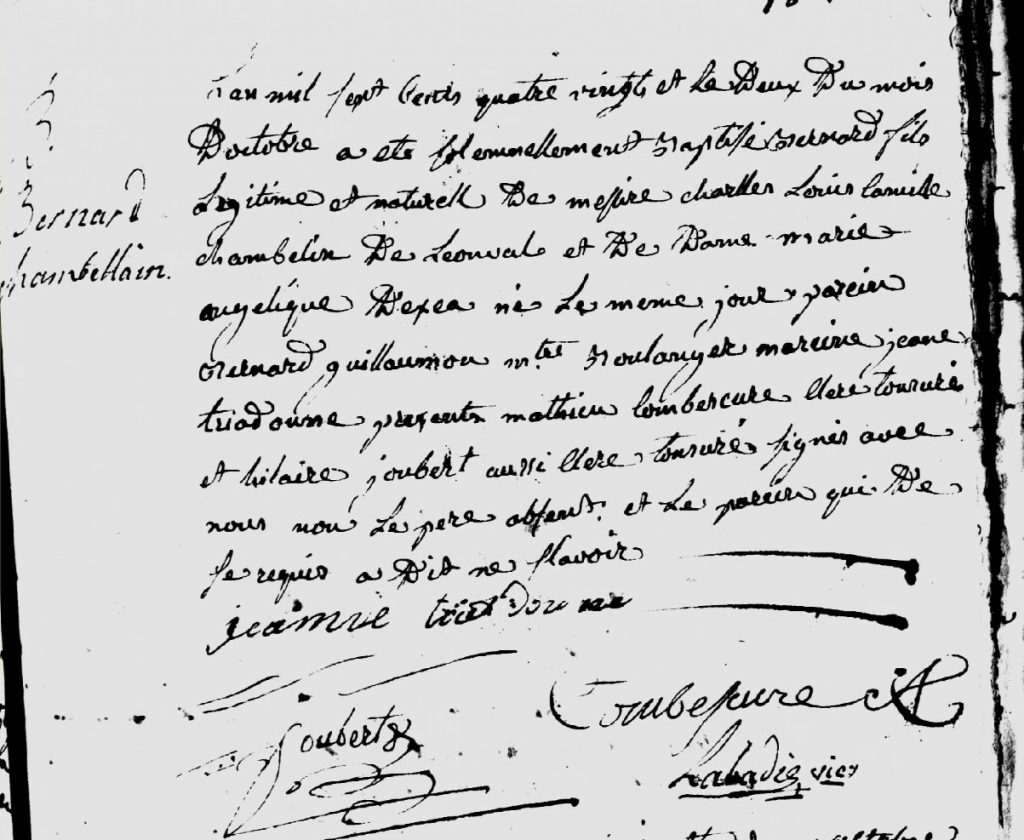 3
Bernard
chambellain.
L'an mil sept Cents quatre vingts et Le Deux Du mois
D'octobre a ete solemnellement Baptisé Bernard fils
Legitime et naturell De messire charlles Louis Camille
chambelin De Leonval et De Dame marie
angelique Dexea né Le meme jour parein
Bernard guillaumou mtre Boulanger mareine jeane
triadourne presents mathieu Combescure Clerc tonsuré
et hilaire joubert aussi Clerc tonsuré signés avec
nous non Le pere absent. et Le parein qui De
se requis a Dit ne sçavoir
jeamne
Joubert
Combescure
Labadie vic